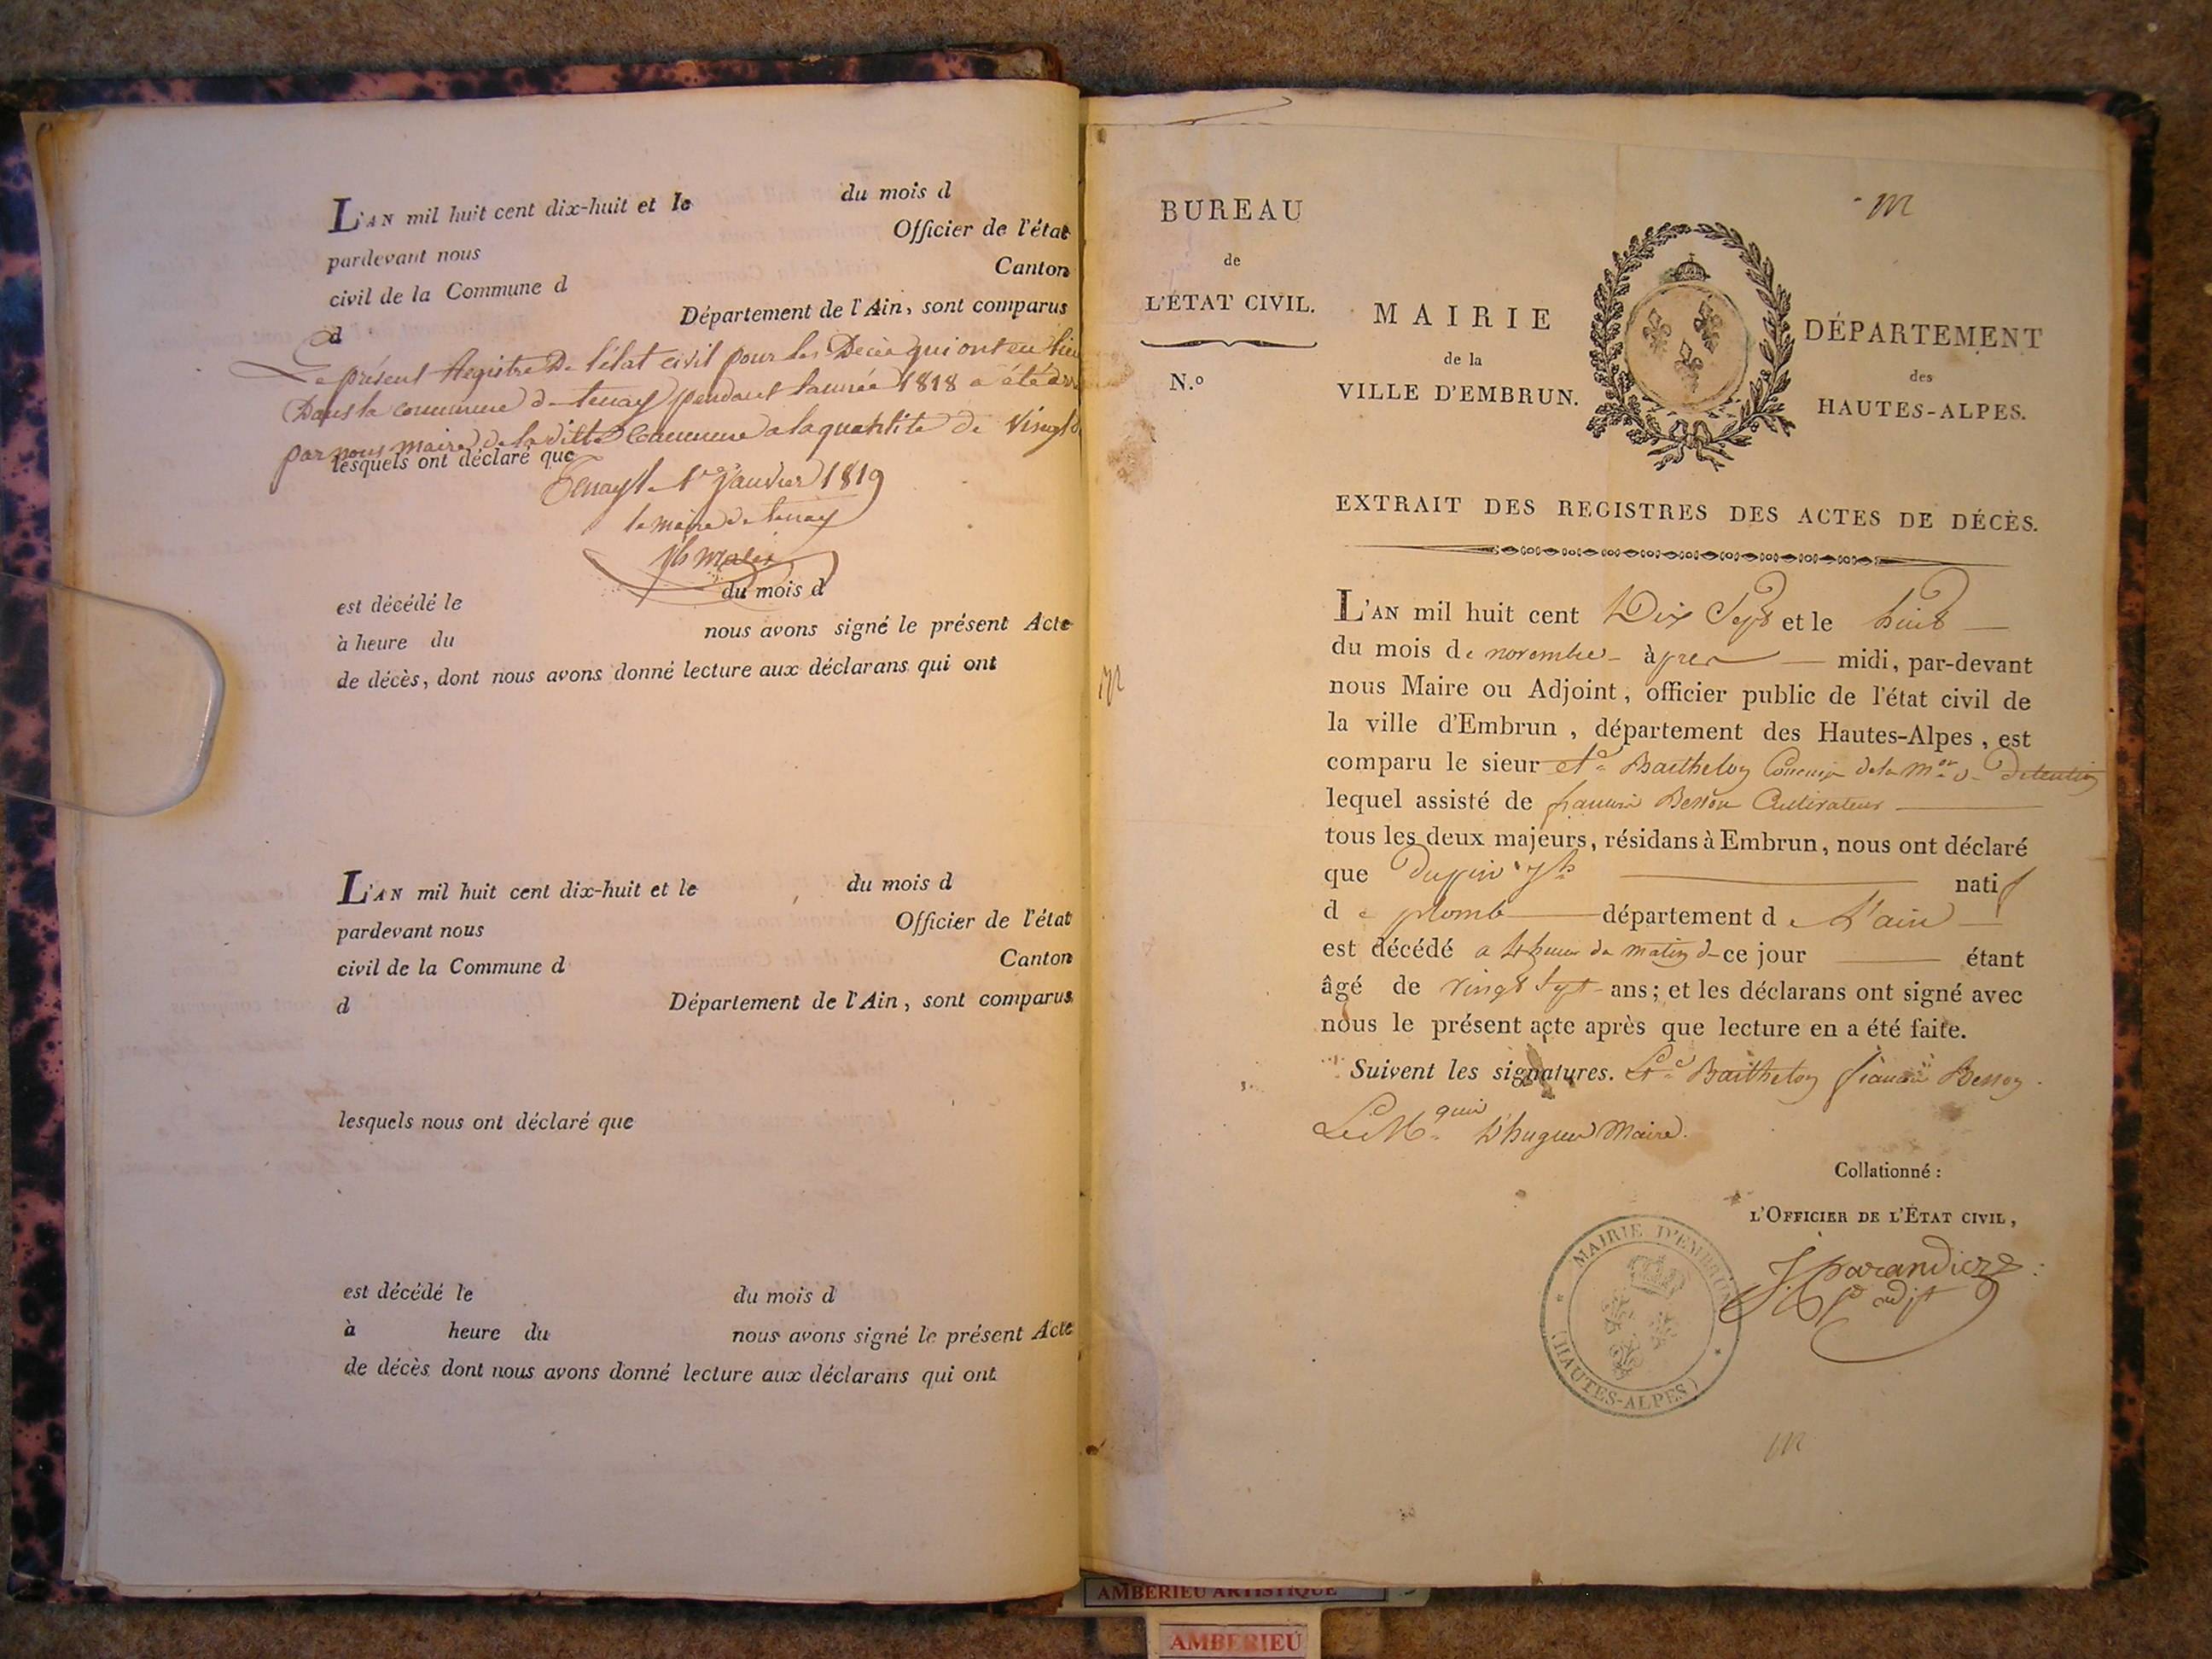 L'AN mil huit cent dix-huit et le du mois d
pardevant nous Officier de l'état
civil de la Commune d Canton
d Département de l'Ain, sont comparus
Le présent Registre De l'état civil pour les Décès qui ont eu lieu
Dans la commune de tenay pendant l'année 1818 a été
par nous maire de la ditte commune a la quantité de Vingt
lesquels ont déclaré que
Tenay le 1er Janvier 1819
le maire de tenay
est décédé le du mois d
à heure du nous avons signé le présent Acte
de décès, dont nous avons donné lecture aux déclarans qui ont
L'AN mil huit cent dix-huit et le du mois d
pardevant nous Officier de l'état
civil de la Commune d Canton
d Département de l'Ain, sont comparus
lesquels nous ont déclaré que
est décédé le du mois d
à heure du nous avons signé le présent Acte
de décès dont nous avons donné lecture aux déclarans qui ont
BUREAU
de
L'ÉTAT CIVIL.
N.o
M
MAIRIE
de la
VILLE D'EMBRUN.
DÉPARTEMENT
des
HAUTES-ALPES.
EXTRAIT DES REGISTRES DES ACTES DE DÉCÈS.
L'AN mil huit cent Dix Sept et le huit
du mois de novembre après midi, par-devant
nous Maire ou Adjoint, officier public de l'état civil de
la ville d'Embrun, département des Hautes-Alpes, est
comparu le sieur Bartheloy Concierge de la Mon de Detention
lequel assisté de françois Besson Cultivateur
tous les deux majeurs, résidans à Embrun, nous ont déclaré
que Duppin Jh natif
de plomb département de L'ain
est décédé a 4 heures du matin de ce jour étant
âgé de vingt Sept ans; et les déclarans ont signé avec
nous le présent acte après que lecture en a été faite.
Suivent les signatures. Bartheloy françois Besson
Le Mquis D'hugues Maire.
Collationné :
L'OFFICIER DE L'ÉTAT CIVIL,
adjt
MAIRIE D'EMBRUN
(HAUTES-ALPES)
M
AMBERIEU ARTISTIQUE
AMBERIEU